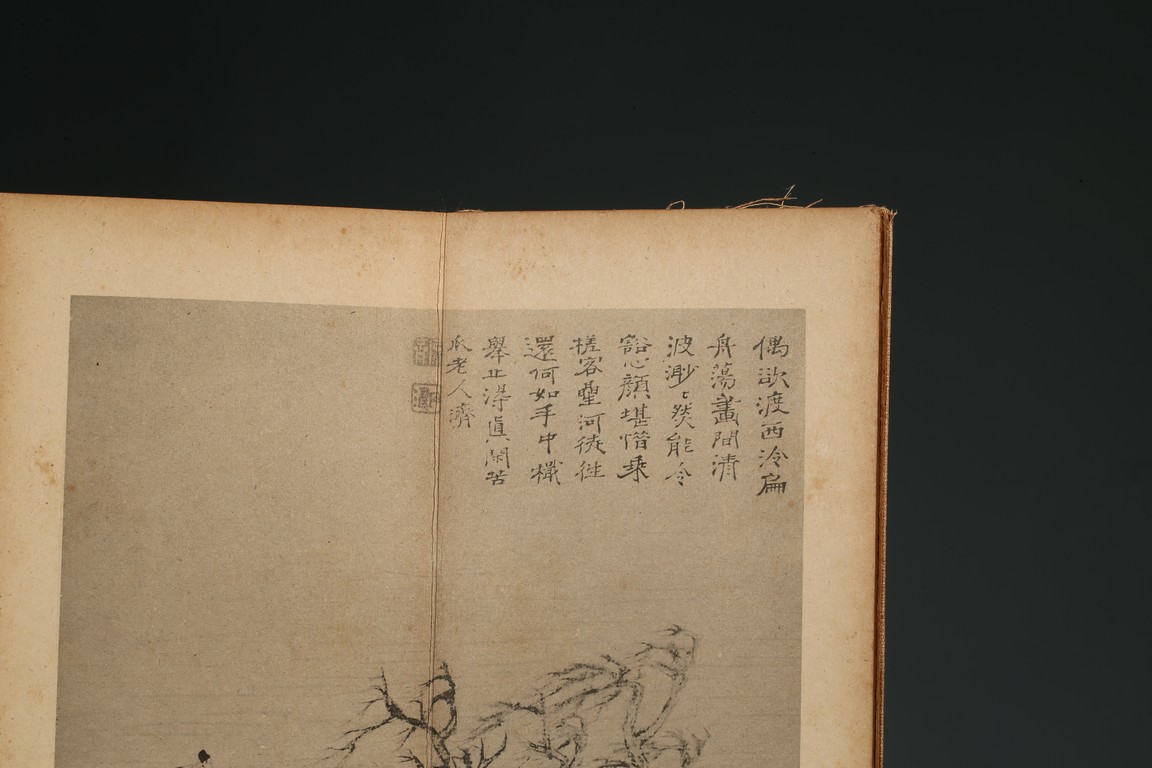 偶欲渡西泠扁
舟蕩畫間清
波渺〻然能令
豁心顏堪惜乘
槎客河徒往
還何如手中檝
舉止得真閑苦
瓜老人濟